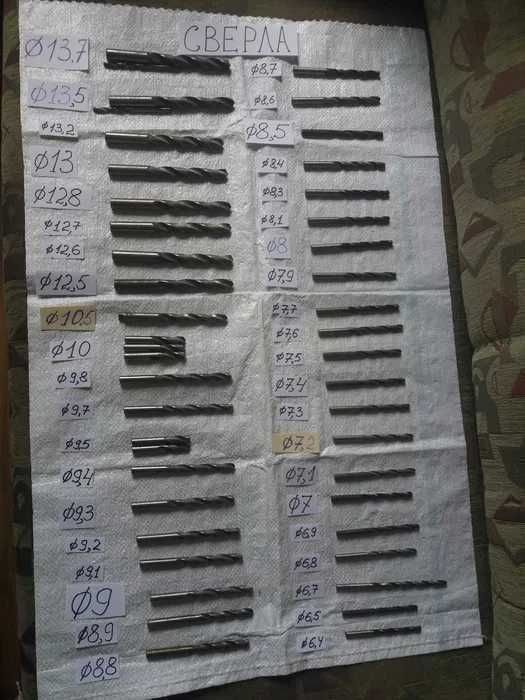 СВЕРЛА
Ø13,7
Ø13,5
Ø13,2
Ø13
Ø12,8
Ø12,7
Ø12,6
Ø12,5
Ø10,5
Ø10
Ø9,8
Ø9,7
Ø9,5
Ø9,4
Ø9,3
Ø9,2
Ø9,1
Ø9
Ø8,9
Ø8,8
Ø8,7
Ø8,6
Ø8,5
Ø8,4
Ø8,3
Ø8,1
Ø8
Ø7,9
Ø7,7
Ø7,6
Ø7,5
Ø7,4
Ø7,3
Ø7,2
Ø7,1
Ø7
Ø6,9
Ø6,8
Ø6,7
Ø6,5
Ø6,4